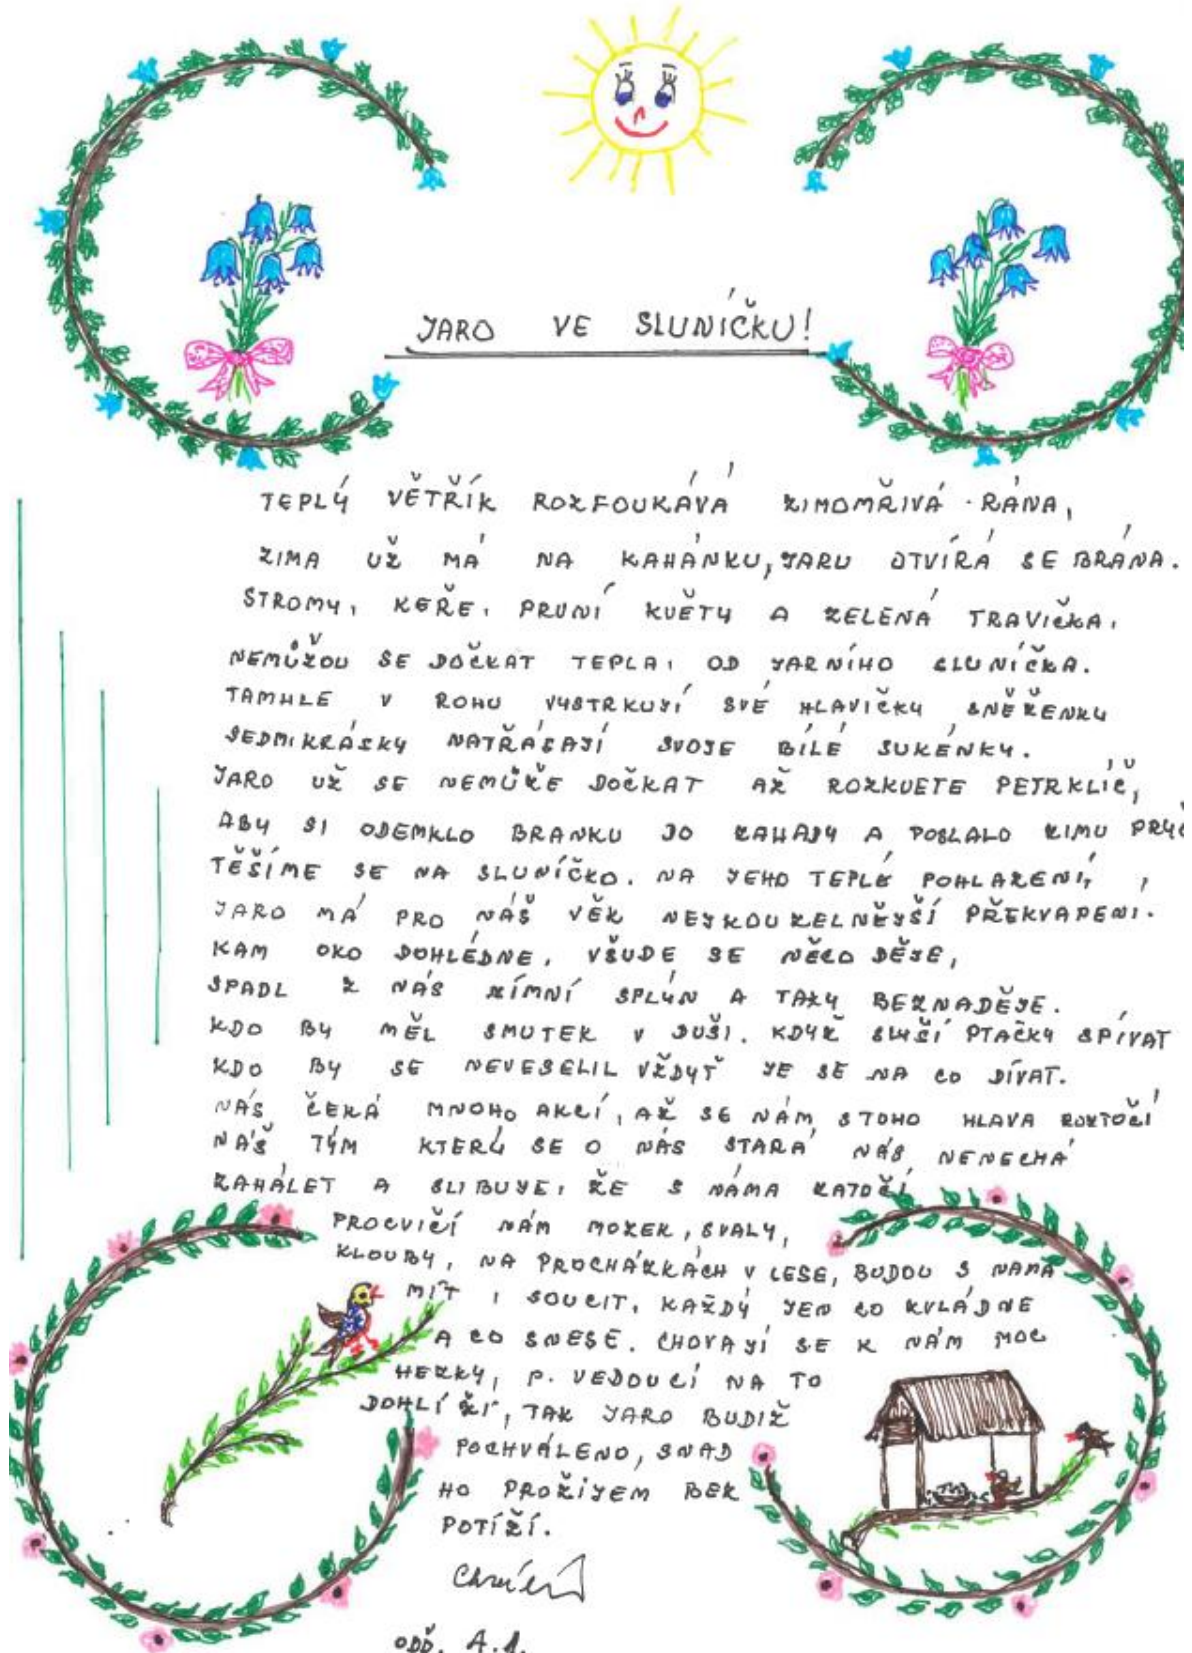 JARO VE SLUNÍČKU!
TEPLÝ VĚTŘÍK ROZFOUKÁVÁ ZIMOMŘIVÁ RÁNA,
ZIMA UŽ MÁ NA KAHÁNKU, JARU OTVÍRÁ SE BRÁNA.
STROMY, KEŘE, PRVNÍ KVĚTY A ZELENÁ TRAVIČKA,
NEMŮŽOU SE DOČKAT TEPLA, OD JARNÍHO SLUNÍČKA.
TAMHLE V ROHU VYSTRKUJÍ SVÉ HLAVIČKY SNĚŽENKY
SEDMIKRÁSKY NATŘÁSAJÍ SVOJE BÍLÉ SUKÉNKY.
JARO UŽ SE NEMŮŽE DOČKAT AŽ ROZKVETE PETRKLÍČ,
ABY SI ODEMKLO BRANKU DO ZAHADY A POSLALO ZIMU PRYČ
TĚŠÍME SE NA SLUNÍČKO. NA JEHO TEPLÉ POHLAZENÍ,
JARO MÁ PRO NÁŠ VĚK NEJKOUZELNĚJŠÍ PŘEKVAPENÍ.
KAM OKO DOHLÉDNE, VŠUDE SE NĚCO DĚJE,
SPADL Z NÁS ZÍMNÍ SPLÝN A TAKY BEZNADĚJE.
KDO BY MĚL SMUTEK V DUŠI. KDYŽ SLYŠÍ PTÁČKY SPÍVAT
KDO BY SE NEVESELIL VŽDYŤ JE SE NA CO DÍVAT.
NÁS ČEKÁ MNOHO AKCÍ, AŽ SE NÁM STOHO HLAVA ROZTOČÍ
NÁŠ TÝM KTERÝ SE O NÁS STARÁ NÁS NENECHÁ
ZAHÁLET A SLIBUJE, ŽE S NÁMA ZATOČÍ
PROCVIČÍ NÁM MOZEK, SVALY,
KLOUBY, NA PROCHÁZKÁCH V LESE, BUDOU S NÁMA
MÍT I SOUCIT, KAŽDÝ JEN CO ZVLÁDNE
A CO SNESE. CHOVAJÍ SE K NÁM MOC
HEZKY, P. VEDOUCÍ NA TO
DOHLÍŽÍ, TAK JARO BUDIŽ
POCHVÁLENO, SNAD
HO PROŽIJEM BEZ
POTÍŽÍ.
ODD. A.1.